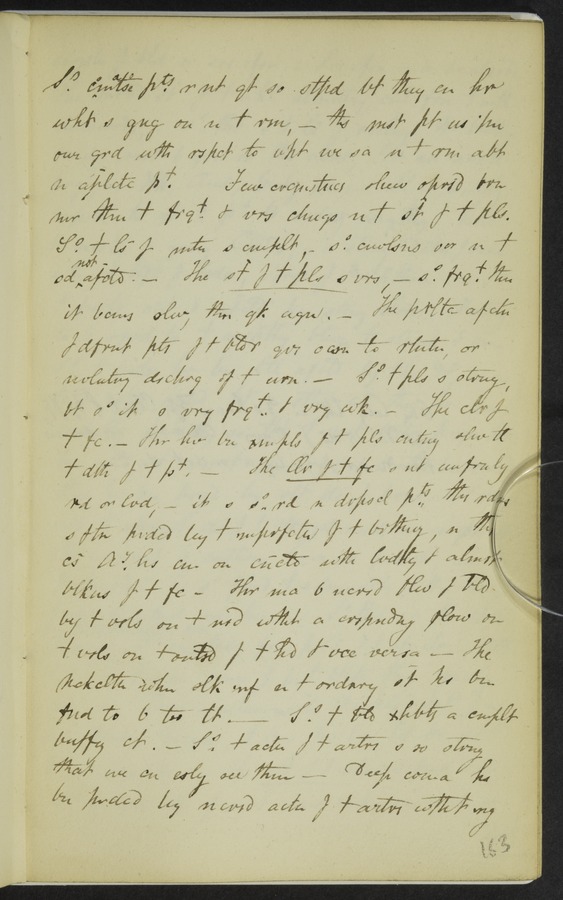 So cmtse pts r nt qt so stpd bt they cn hr
wht s gng on n t rm, – ths mst pt us 'pn
our grd with rspct to wht we sa n t rm abt
n aplctc pt. Few crcmstncs shew
mr thn t frqt & vrs chngs n t st f t pls.
So t ls f mtn s cmplt, – so cnvlsns oor n t
sd not afctd. – The st f t pls s vrs, – so frqt thn
it bcms slw, thn qk agn. – The prltc afctn
f dfrnt pts f t bldr gvs ocsn to rtntn, or
nvlntry dschrg of t urn. – So t pls s strng,
bt so it s vry frqt. & vry wk. – The clr f
t fc. – Thr hv bn xmpls f t pls cntng slw tl
t dth f t pt. – The Clr f t fc s nt unfrmly
rd or lvd, – it s so rd n dspsd pts, ths rdns
s oftn prdcd by t mprfctn f t brthng, n ths
cs Ay. hs cm on cnctd with lvdty & almst
blkns f t fc – Thr ma b ncrsd flw f bld
by t vsls on t nsd witht a crspndng flow on
t vsls on t outsd f t hd & vce versa – The
so tht n t ordnry st hs bn
fnd to b too tt. — So t bld xhbts a cmplt
buffy ct. – So t actn f t artrs s so strng
that we cn esly see thm – Deep coma hs
bn prdcd by ncrsd actn f t artrs witht ny
163